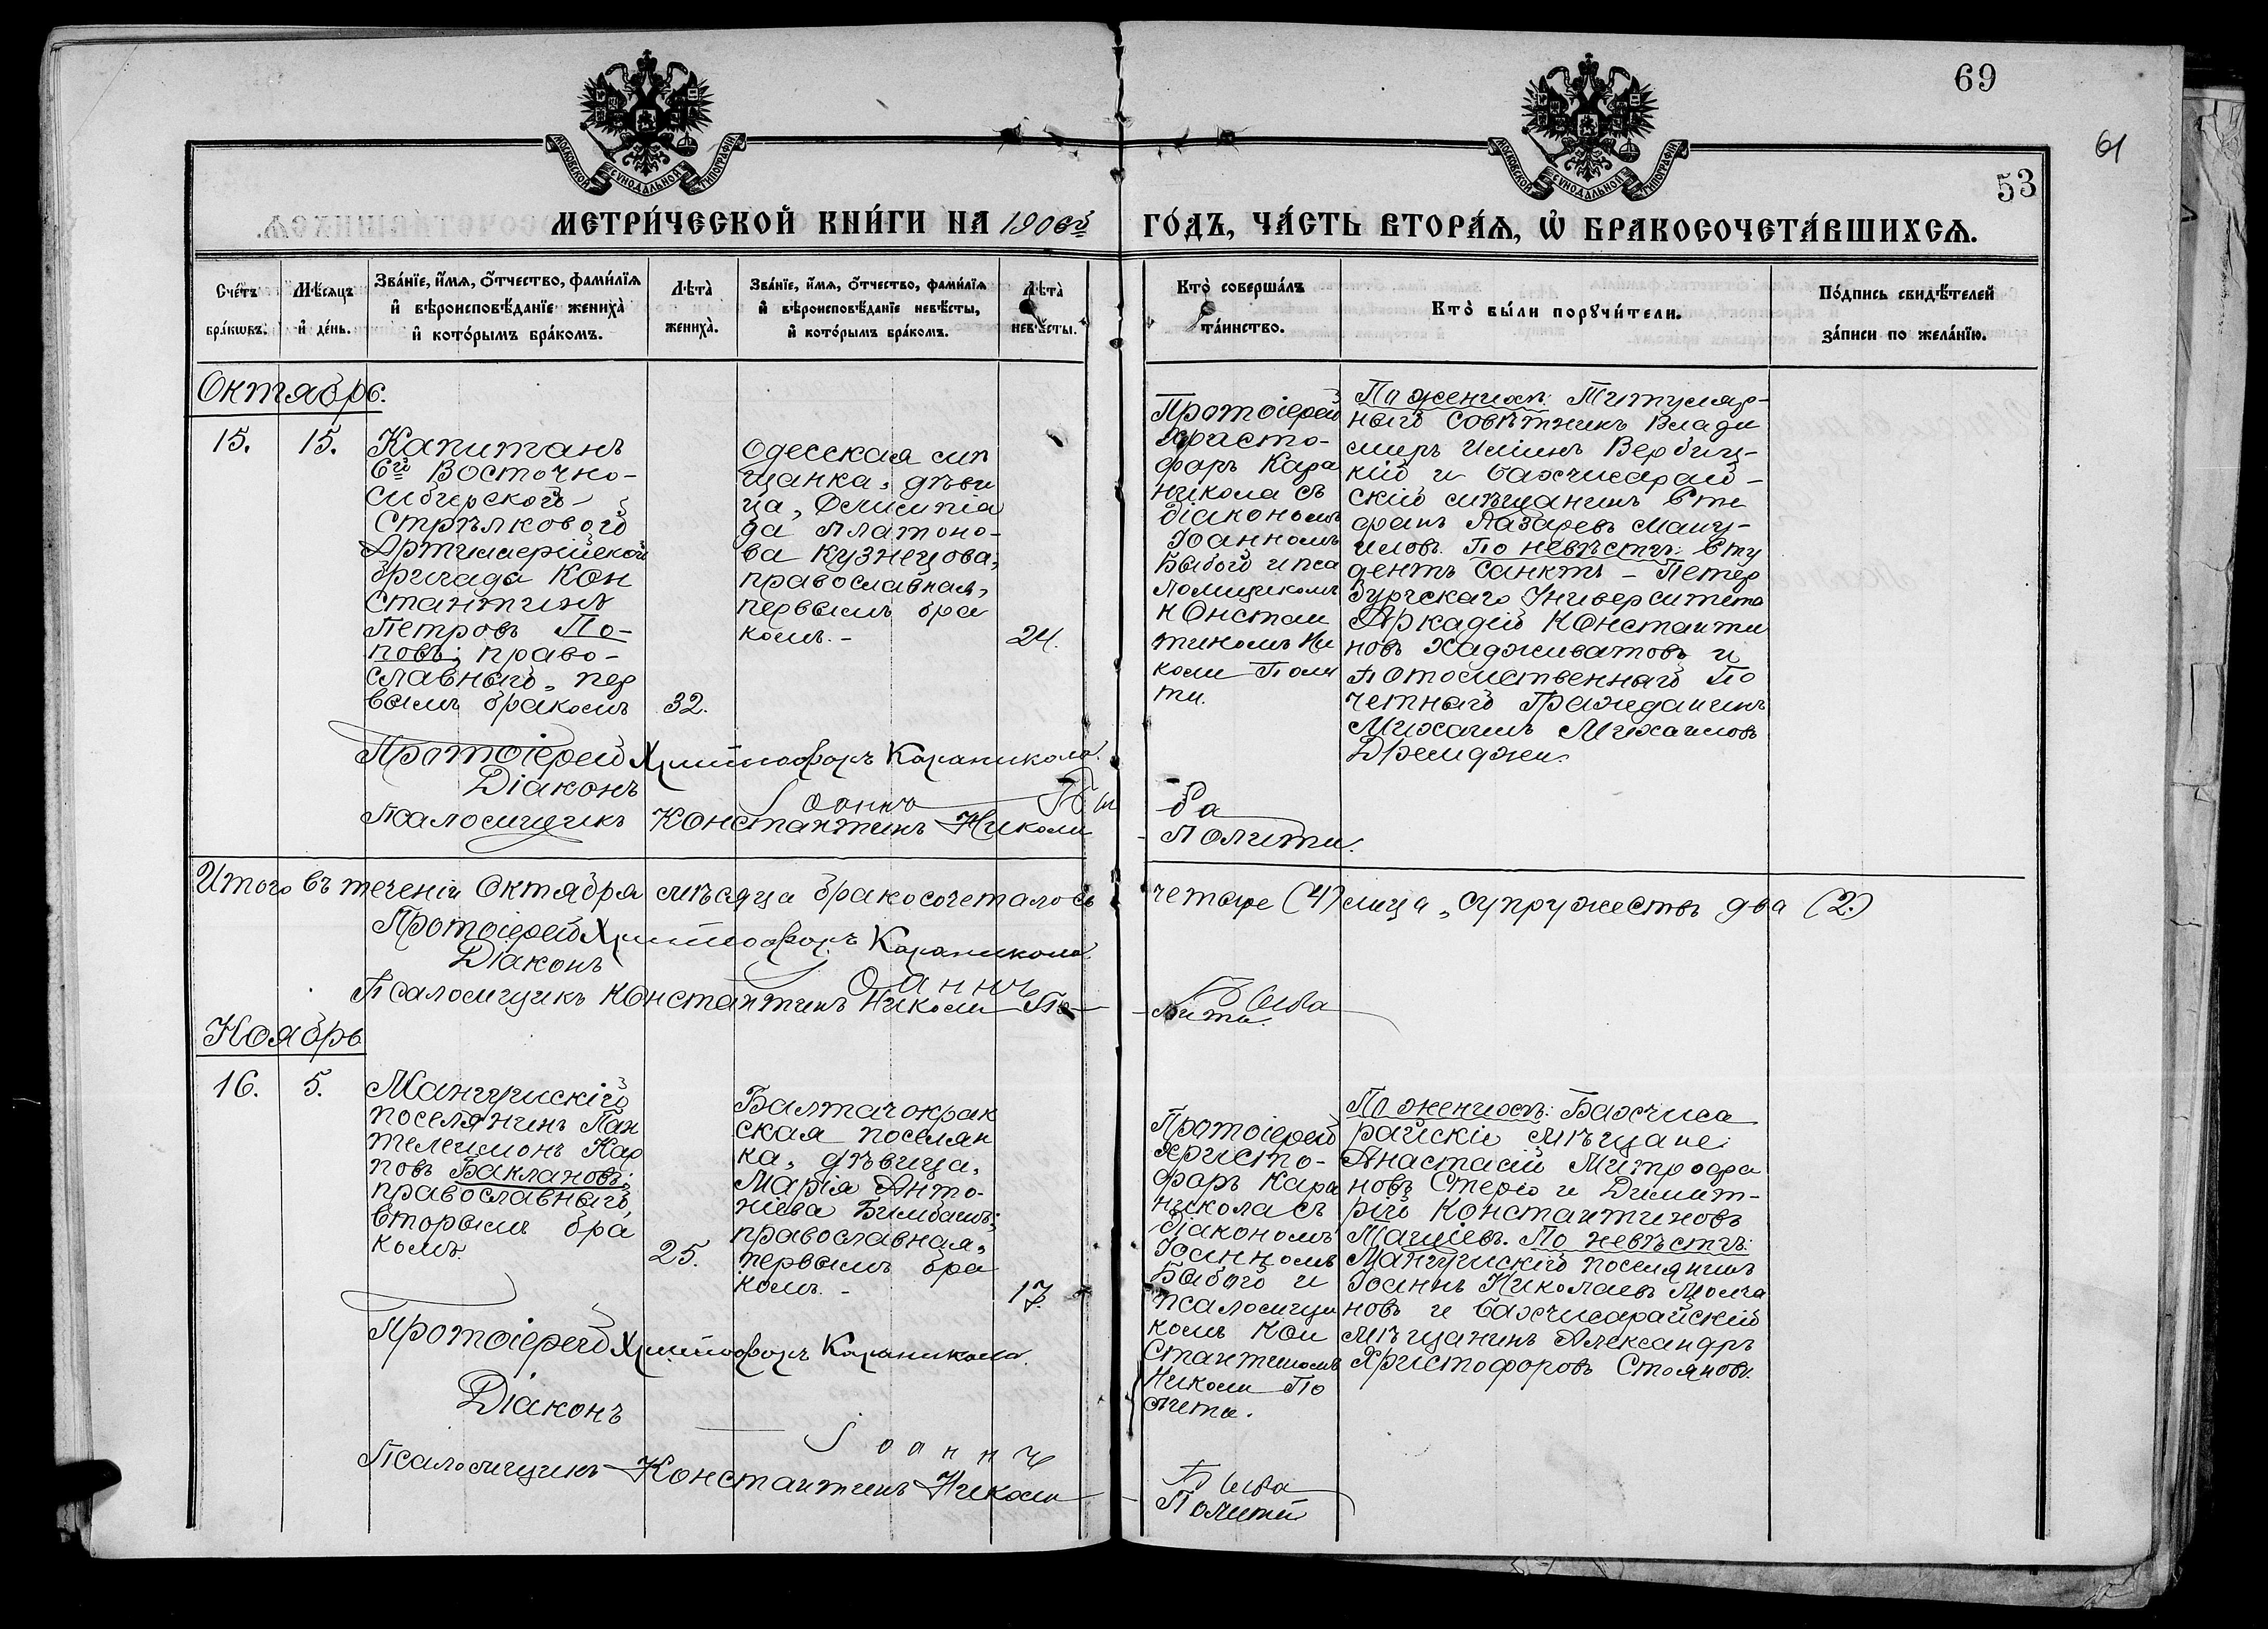 69
61
53
МОСКОВСКОЙ СУНОДАЛЬНОЙ ТИПОГРАФІИ
МОСКОВСКОЙ СУНОДАЛЬНОЙ ТИПОГРАФІИ
МЕТРИ́ЧЕСКОЙ КНИ́ГИ НА 1906й ГО́ДЪ, ЧА́СТЬ ВТОРА́Я, Ѽ БРАКОСОЧЕТА́ВШИХСЯ.
Сче́тъ бра́ковъ.
Мѣ́сяцъ и҆ де́нь.
Зва́нїе, и҆́мя, ѻ҆́тчество, фами́лїя
и҆ вѣроисповѣ́данїе жениха̀
и҆ кото́рымъ бра́комъ.
Лѣта̀
жениха̀.
Зва́нїе, и҆́мя, ѻ҆́тчество, фами́лїя
и҆ вѣроисповѣ́данїе невѣ́сты,
и҆ кото́рымъ бра́комъ.
Лѣта̀
невѣ́сты.
Кто̀ соверша́лъ
та́инство.
Кто̀ бы́ли порꙋчи́тели.
По́дпись свидѣ́телей
за́писи по жела́нїю.
Октябрь.
15.
15.
Капитанъ
6й Восточно-
Сибирской
Стрѣлковой
Артиллерійской
бригада Кон
стантинъ
Петровъ По-
повъ; право-
славный, пер
вымъ бракомъ
32.
Одесская мѣ
щанка, дѣви
ца, Олимпіа
да Платоно-
ва Кузнецова,
православная,
первымъ бра
комъ.-
24.
Протоіерей
Христо-
форъ Кара
никола съ
діакономъ
Іоанномъ
Бывой и пса
ломщикомъ
Констан
тиномъ Ни
коли Поли
ти.
По женихѣ: Титуляр-
ный Совѣтникъ Влади
миръ Ильинъ Вербиц-
кій и бахчисарай-
скій мѣщанинъ Сте
фанъ Лазаревъ
По невѣстѣ: Сту
дентъ Санктъ-Петер
бургскаго Университета
Аркадій Константи
новъ Хадживатовъ и
Потомственный По
четный Гражданинъ
Михаилъ Михаиловъ
Протоіерей Христофоръ Караникола.
Діаконъ Іоаннъ Бы ва
Псаломщикъ Константинъ Николи Полити.
Итого въ теченіи Октября мѣсяца бракосочеталось четыре (4) лица, супружествъ два (2.)
Протоіерей Христофоръ Караникола.
Діаконъ Іоаннъ Быва
Псаломщикъ Константинъ Николи По-лити.
Ноябрь
16.
5.
Мангушскій
поселянинъ Пан
телеимонъ Кар
повъ Баклановъ;
православный,
вторымъ бра
комъ.
25.
Балтачокрак
ская поселян
ка, дѣвица,
Марія Анто-
ніева Бимбашъ;
православная,
первымъ бра
комъ.-
17.
Протоіерей
Христо-
форъ Кара
никола съ
діакономъ
Іоанномъ
Бывой и
псаломщи
комъ Кон
стантиномъ
Николи По
лити.
По женихѣ: Бахчиса
райскіе мѣщане:
Анастасій Митрофа
новъ Стеріо и Димит-
рій Константиновъ
По невѣстѣ:
Мангушскій поселянинъ
Іоаннъ Николаевъ Молча
новъ и бахчисарайскій
мѣщанинъ Александръ
Христофоровъ Стояновъ.
Протоіерей Христофоръ Караникола.
Діаконъ Іоаннъ Быва
Псаломщикъ Константинъ Николи Полити